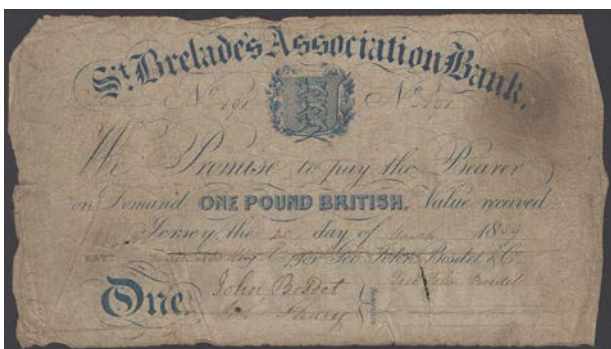 St. Brelade's Association Bank.
No 191 No 191
We Promise to pay the Bearer
on Demand ONE POUND BRITISH. Value received
Jersey, the 25 day of 18
for Geo. John Bosdet & Co.
One. John Bosdet
Geo John Bosdet